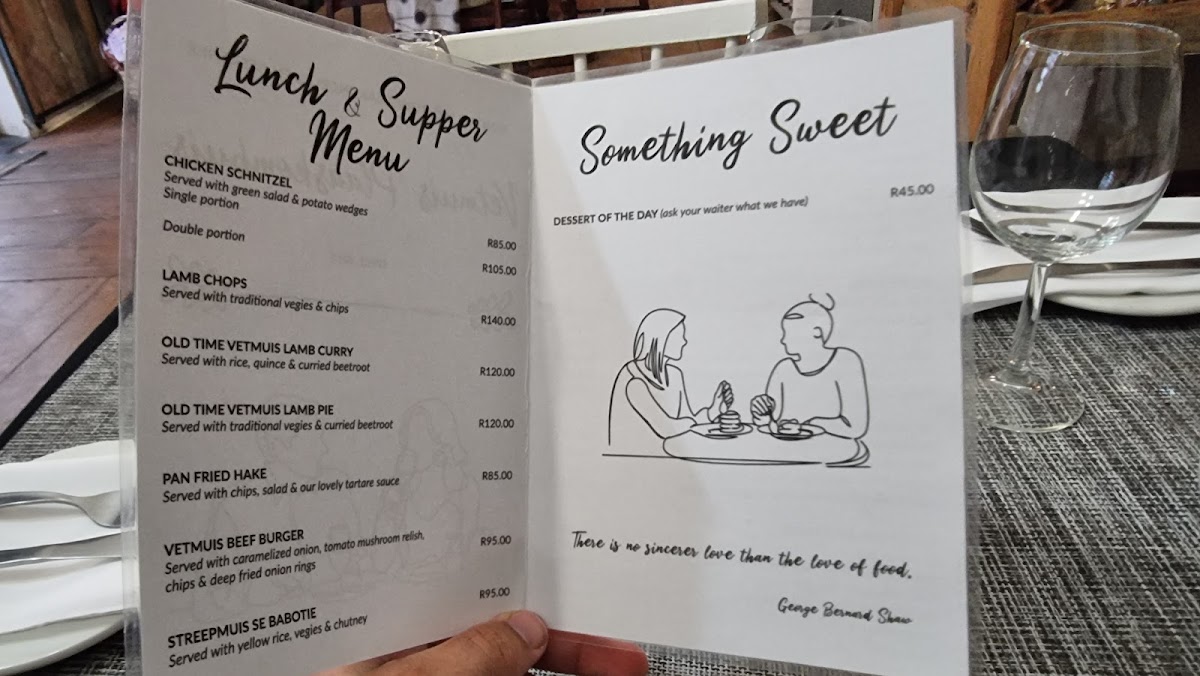 Lunch & Supper
Menu
CHICKEN SCHNITZEL
Served with green salad & potato wedges
Single portion R85.00
Double portion R105.00
LAMB CHOPS
Served with traditional vegies & chips R140.00
OLD TIME VETMUIS LAMB CURRY
Served with rice, quince & curried beetroot R120.00
OLD TIME VETMUIS LAMB PIE
Served with traditional vegies & curried beetroot R120.00
PAN FRIED HAKE
Served with chips, salad & our lovely tartare sauce R85.00
VETMUIS BEEF BURGER
Served with caramelized onion, tomato mushroom relish, R95.00
chips & deep fried onion rings
STREEPMUIS SE BABOTIE R95.00
Served with yellow rice, vegies & chutney
Something Sweet
DESSERT OF THE DAY (ask your waiter what we have) R45.00
There is no sincerer love than the love of food.
George Bernard Shaw